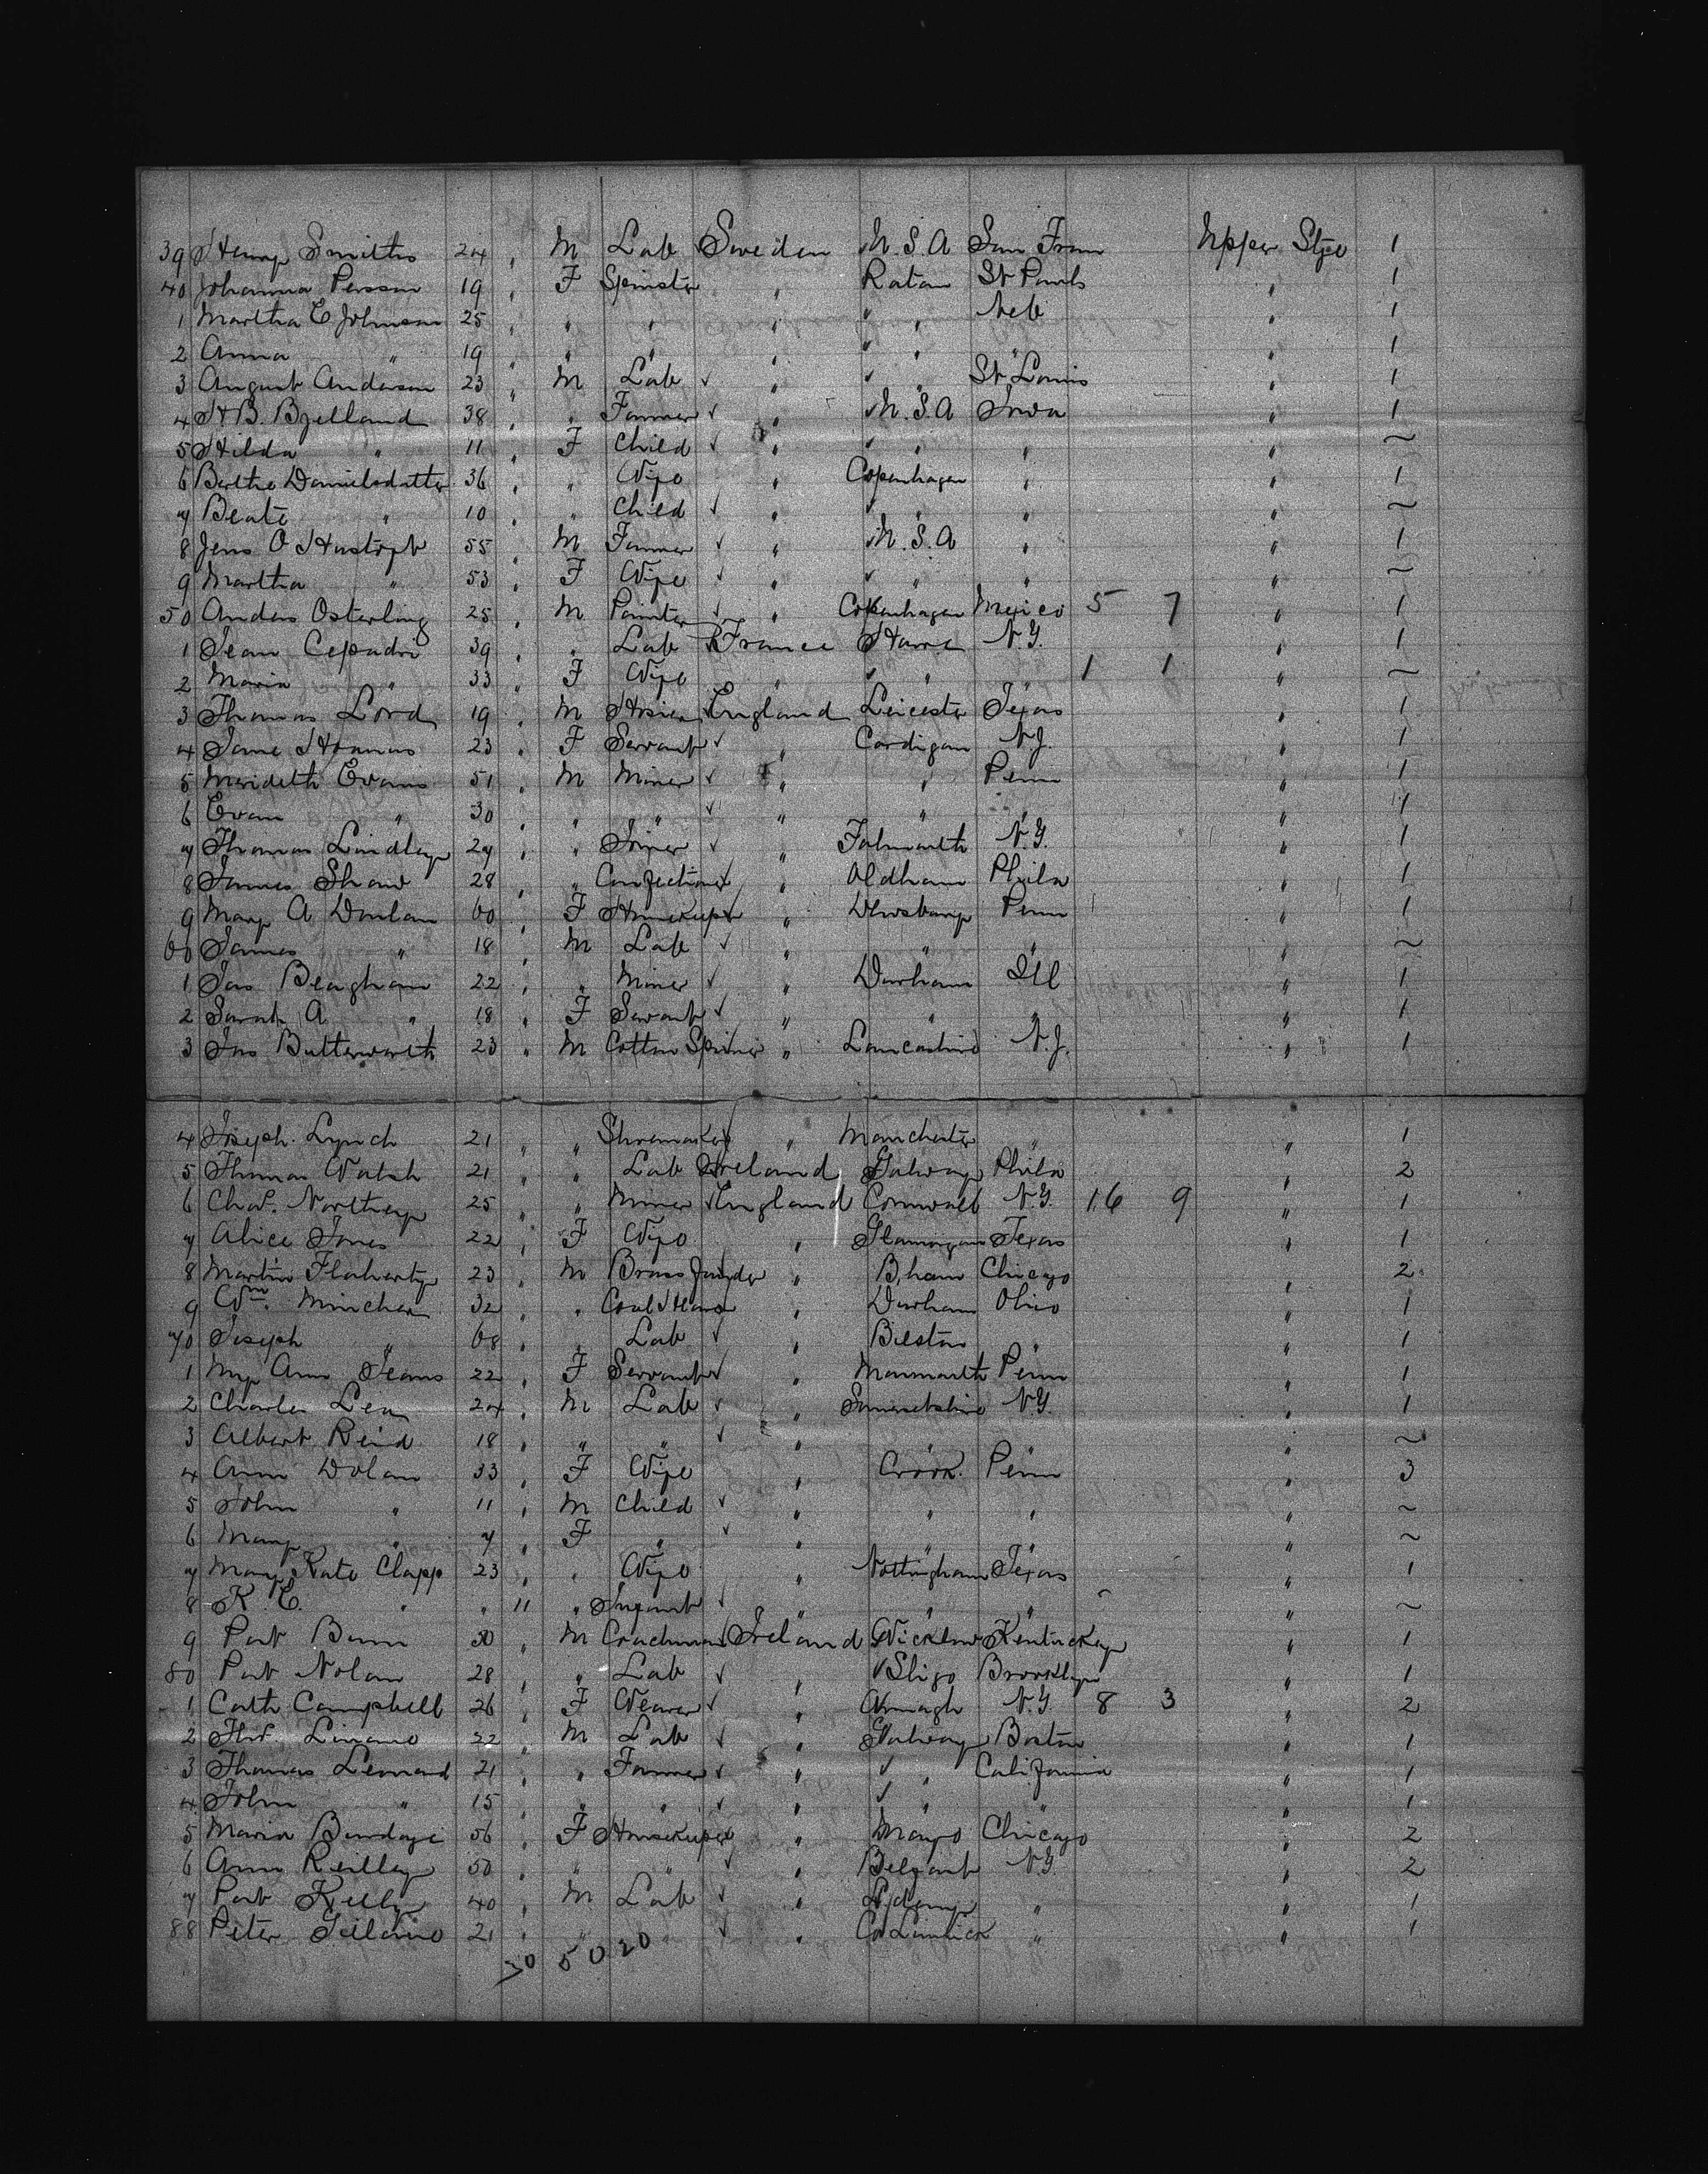 39 Henry Smith 24 " M Lab Sweden U.S.A San Fran Upper Stge 1
40 Johanna Persson 19 " F Spinster " Ratan St Pauls " 1
1 Martha C Johnson 25 " " " " " " Neb " 1
2 Anna " 19 " " " " " " " " 1
3 August Anderson 23 " M Lab " " " St Louis " 1
4 H B. Bjelland 38 " " Farmer " U.S.A Iowa " 1
5 Hilda " 11 " F Child " " " " ~
6 Berthe Danielsdatter 36 " " Wife " Copenhagen " " 1
7 Beate " 10 " " Child " " " " ~
8 Jens O 55 " M Farmer " U.S.A " " 1
9 Martha " 53 " F Wife " " " " ~
50 Anders Osterling 25 " M Painter " Copenhagen Mexico 5 7 " 1
1 Jean Cepadri 39 " " Lab France Havre N.Y. " 1
2 Maria " 33 " F Wife " " " 1 1 " ~
3 Thomas Lord 19 " M England Leicester Texas " 1
4 Jane Thomas 23 " F Servant " Cardigan N.J. " 1
5 Merideth Evans 51 " M Miner " " Penn " 1
6 Evan " 30 " " " " " " " 1
7 Thomas Lindley 27 " " Joiner " Falmouth N.Y. " 1
8 James Shaw 28 " " Confectioner " Oldham Phila " 1
9 Mary A Donlan 60 " F Housekeeper " Dewsbury Penn " 1
60 James " 18 " M Lab " " " " ~
1 Jas Beagham 22 " " Miner " Durham Ill " 1
2 Sarah A " 18 " F Servant " " " " 1
3 Jas Butterworth 23 " M Cotton Spinner " Lancashire N.J. " 1
4 Joseph Lynch 21 " " Shoemaker " Manchester " " 1
5 Thomas Walsh 21 " " Lab Ireland Galway Phila " 2
6 Chas. Northey 25 " " Miner England Cornwall N.Y. 16 9 " 1
7 Alice Jones 22 " F Wife " Glamorgan Texas " 1
8 Martin Flaherty 23 " M Brass founder " B,ham Chicago " 2
9 Wm. Mincher 32 " " Coal Hewer " Durham Ohio " 1
70 Joseph " 68 " " Lab " Bilston " " 1
1 My Ann Jeans 22 " F Servant " Monmouth Penn " 1
2 Charles Lea 24 " M Lab " Somersetshire N.Y. " 1
3 Albert Reid 18 " " " " " " " ~
4 Ann Dolan 33 " F Wife " Crook. Penn " 3
5 John " 11 " M Child " " " " ~
6 Mary " 7 " F " " " " " ~
7 Mary Kate Clapp 23 " " Wife " Nottingham Texas " 1
8 K. C. " " 11 " Infant " " " " ~
9 Pat Bunn 30 " M Coachman Ireland Wicklow Kentuckey " 1
80 Pat Nolan 28 " " Lab " Sligo Brooklyn " 1
1 Cath Campbell 26 " F Weaver " Armagh N.Y. 8 3 " 2
2 Thos. 22 " M Lab " Galway Boston " 1
3 Thomas Lennard 21 " " Farmer " " California " 1
4 John " 15 " " " " " " " 1
5 Maria 56 " F Housekeeper " Mayo Chicago " 2
6 Ann Reilley 50 " " " " Belfast N.Y. " 2
7 Pat Kelly 40 " M Lab " " " 1
88 Peter 21 " " " " Co Limrick " " 1
30 50 20